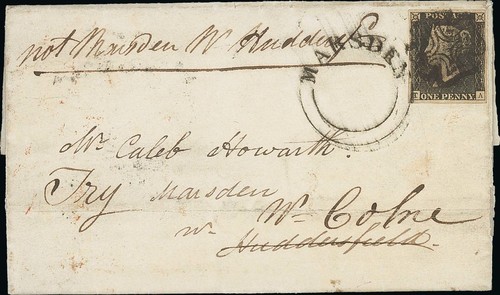 not Marsden Nr Hudders
MARSDEN
POSTAGE
T A
ONE PENNY
Mr. Caleb Howarth.
Try Marsden
Nr Colne
nr Huddersfield.